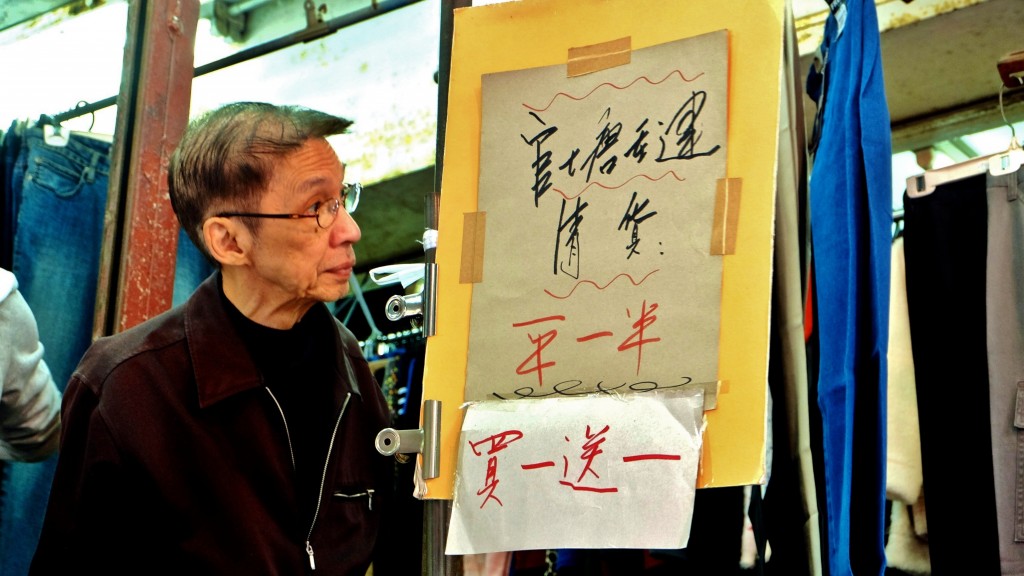 官塘重建
清貨
平一半
買一送一